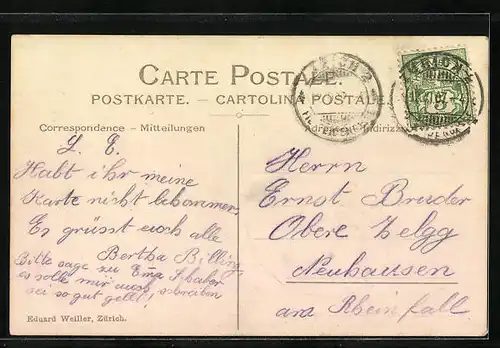 CARTE POSTALE.
POSTKARTE. – CARTOLINA POSTALE.
Correspondence – Mitteilungen
L. E.
Habt ihr meine
Karte nicht bekommen,
Es grüsst euch alle
Bertha Billing
Bitte sage zu Ema
es solle mir auch schreiben
sei so gut gell!
Eduard Weiller, Zürich.
ZÜRICH 2
Herrn
Ernst Bruder
Obere Zelgg
Neuhausen
am Rheinfall